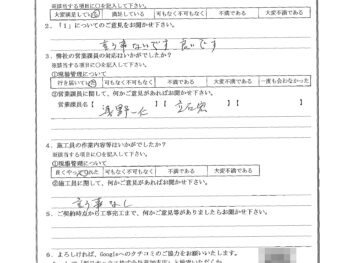 ※該当する項目に○を記入して下さい。
大変満足している 満足している 可もなく不可もなく 不満である 大変不満である
2.「1」についてのご意見をお聞かせ下さい。
言う事ないです 良いです
3．弊社の営業課員の対応はいかがでしたか？
※該当する項目に○を記入して下さい。
①現場管理について
行き届いている 可もなく不可もなく 不満である 大変不満である 一度も会わなかった
②営業課員に関して、何かご意見があればお聞かせ下さい。
営業課員名【 浅野 】【 立石 】【 】
4．施工員の作業内容等はいかがでしたか？
※該当する項目に○を記入して下さい。
①現場管理について
良くやってくれた 可もなく不可もなく 不満である 大変不満である
②施工員に関して、何かご意見があればお聞かせ下さい。
言う事なし
5．ご契約時点から工事完工まで、何かご意見等がありましたらお聞かせ下さい。
6．よろしければ、Googleへのクチコミのご協力をお願いいたします。